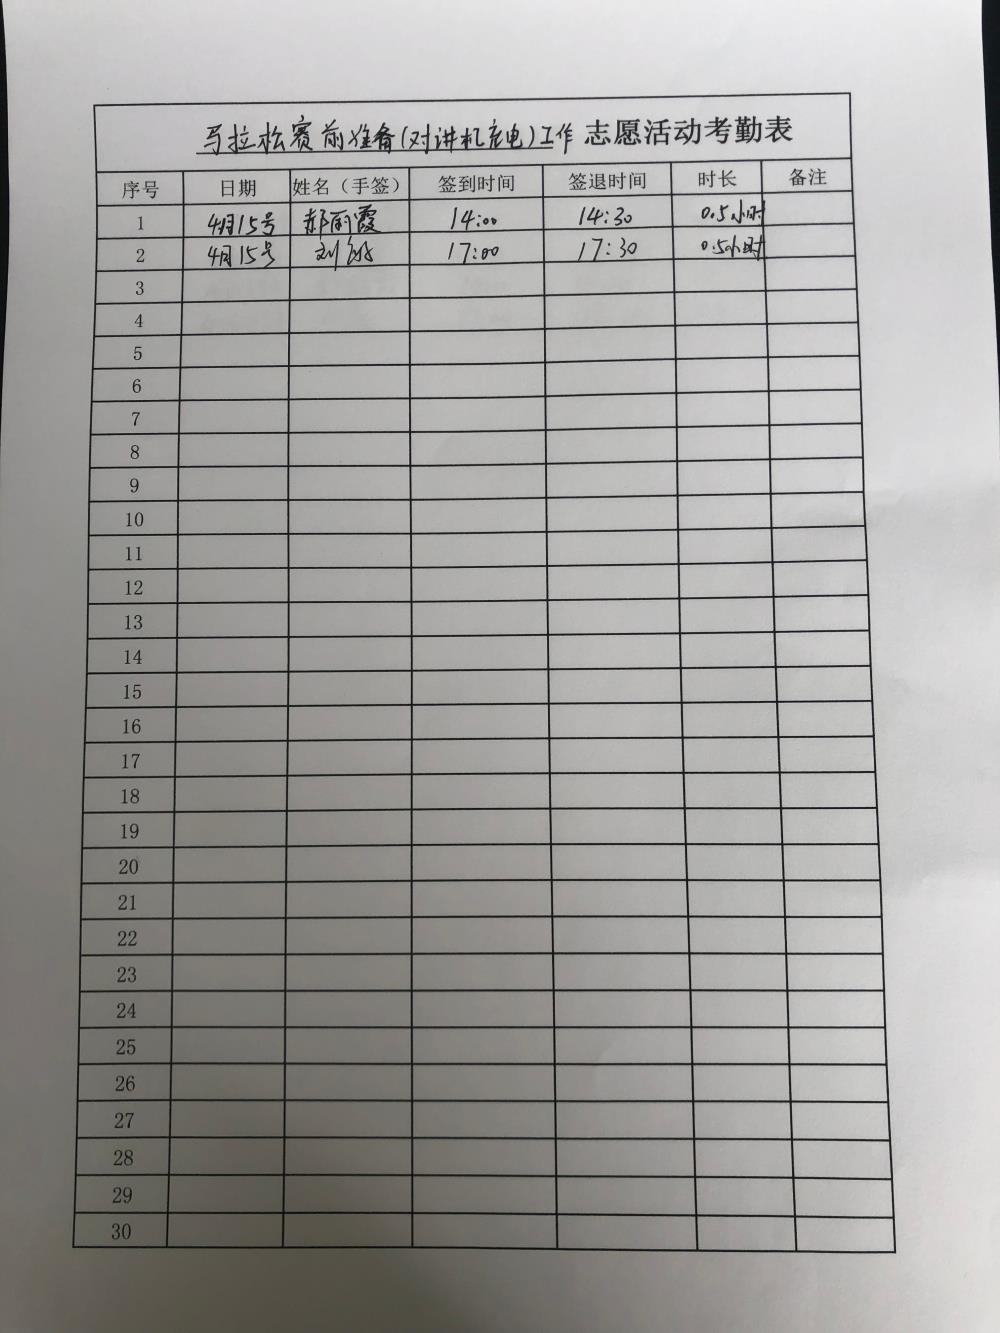 马拉松赛前准备(对讲机充电)工作 志愿活动考勤表
序号 日期 姓名（手签） 签到时间 签退时间 时长 备注
1 4月15号 郝丽霞 14:00 14:30 0.5小时
2 4月15号 刘 17:00 17:30 0.5小时
3
4
5
6
7
8
9
10
11
12
13
14
15
16
17
18
19
20
21
22
23
24
25
26
27
28
29
30